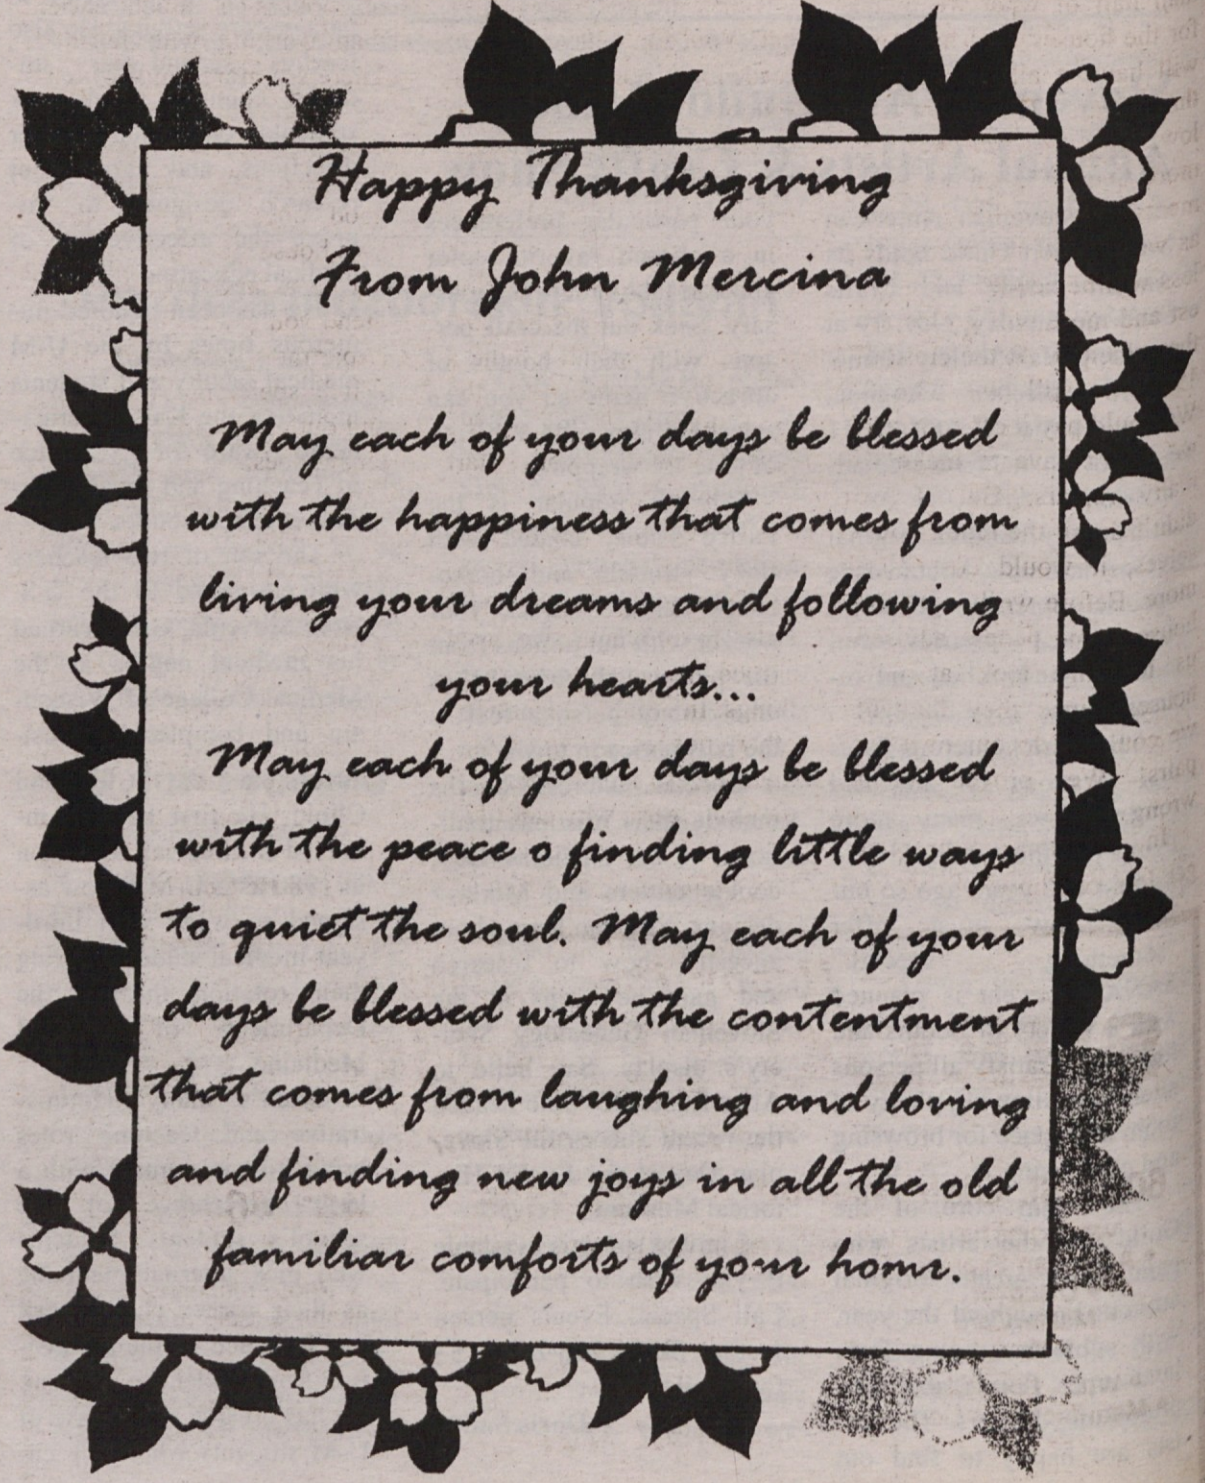 Happy Thanksgiving
From John Mercina
May each of your days be blessed
with the happiness that comes from
living your dreams and following
your hearts...
May each of your days be blessed
with the peace o finding little ways
to quiet the soul. May each of your
days be blessed with the contentment
that comes from laughing and loving
and finding new joys in all the old
familiar comforts of your homr.